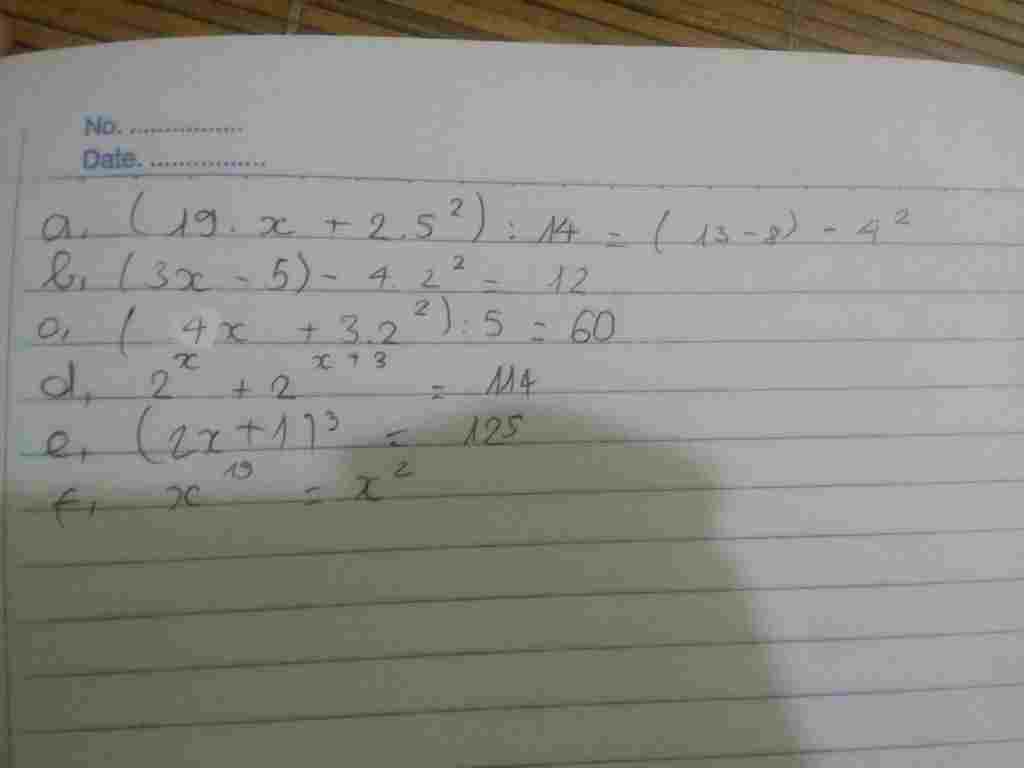 No. ................
Date. ................
a, (19.x + 2.5²) : 14 = (13-8) - 4²
b, (3x - 5) - 4.2² = 12
c, (4x + 3.2²) : 5 = 60
d, 2ˣ + 2ˣ⁺³ = 114
e, (2x+1)³ = 125
f, x¹⁹ = x²